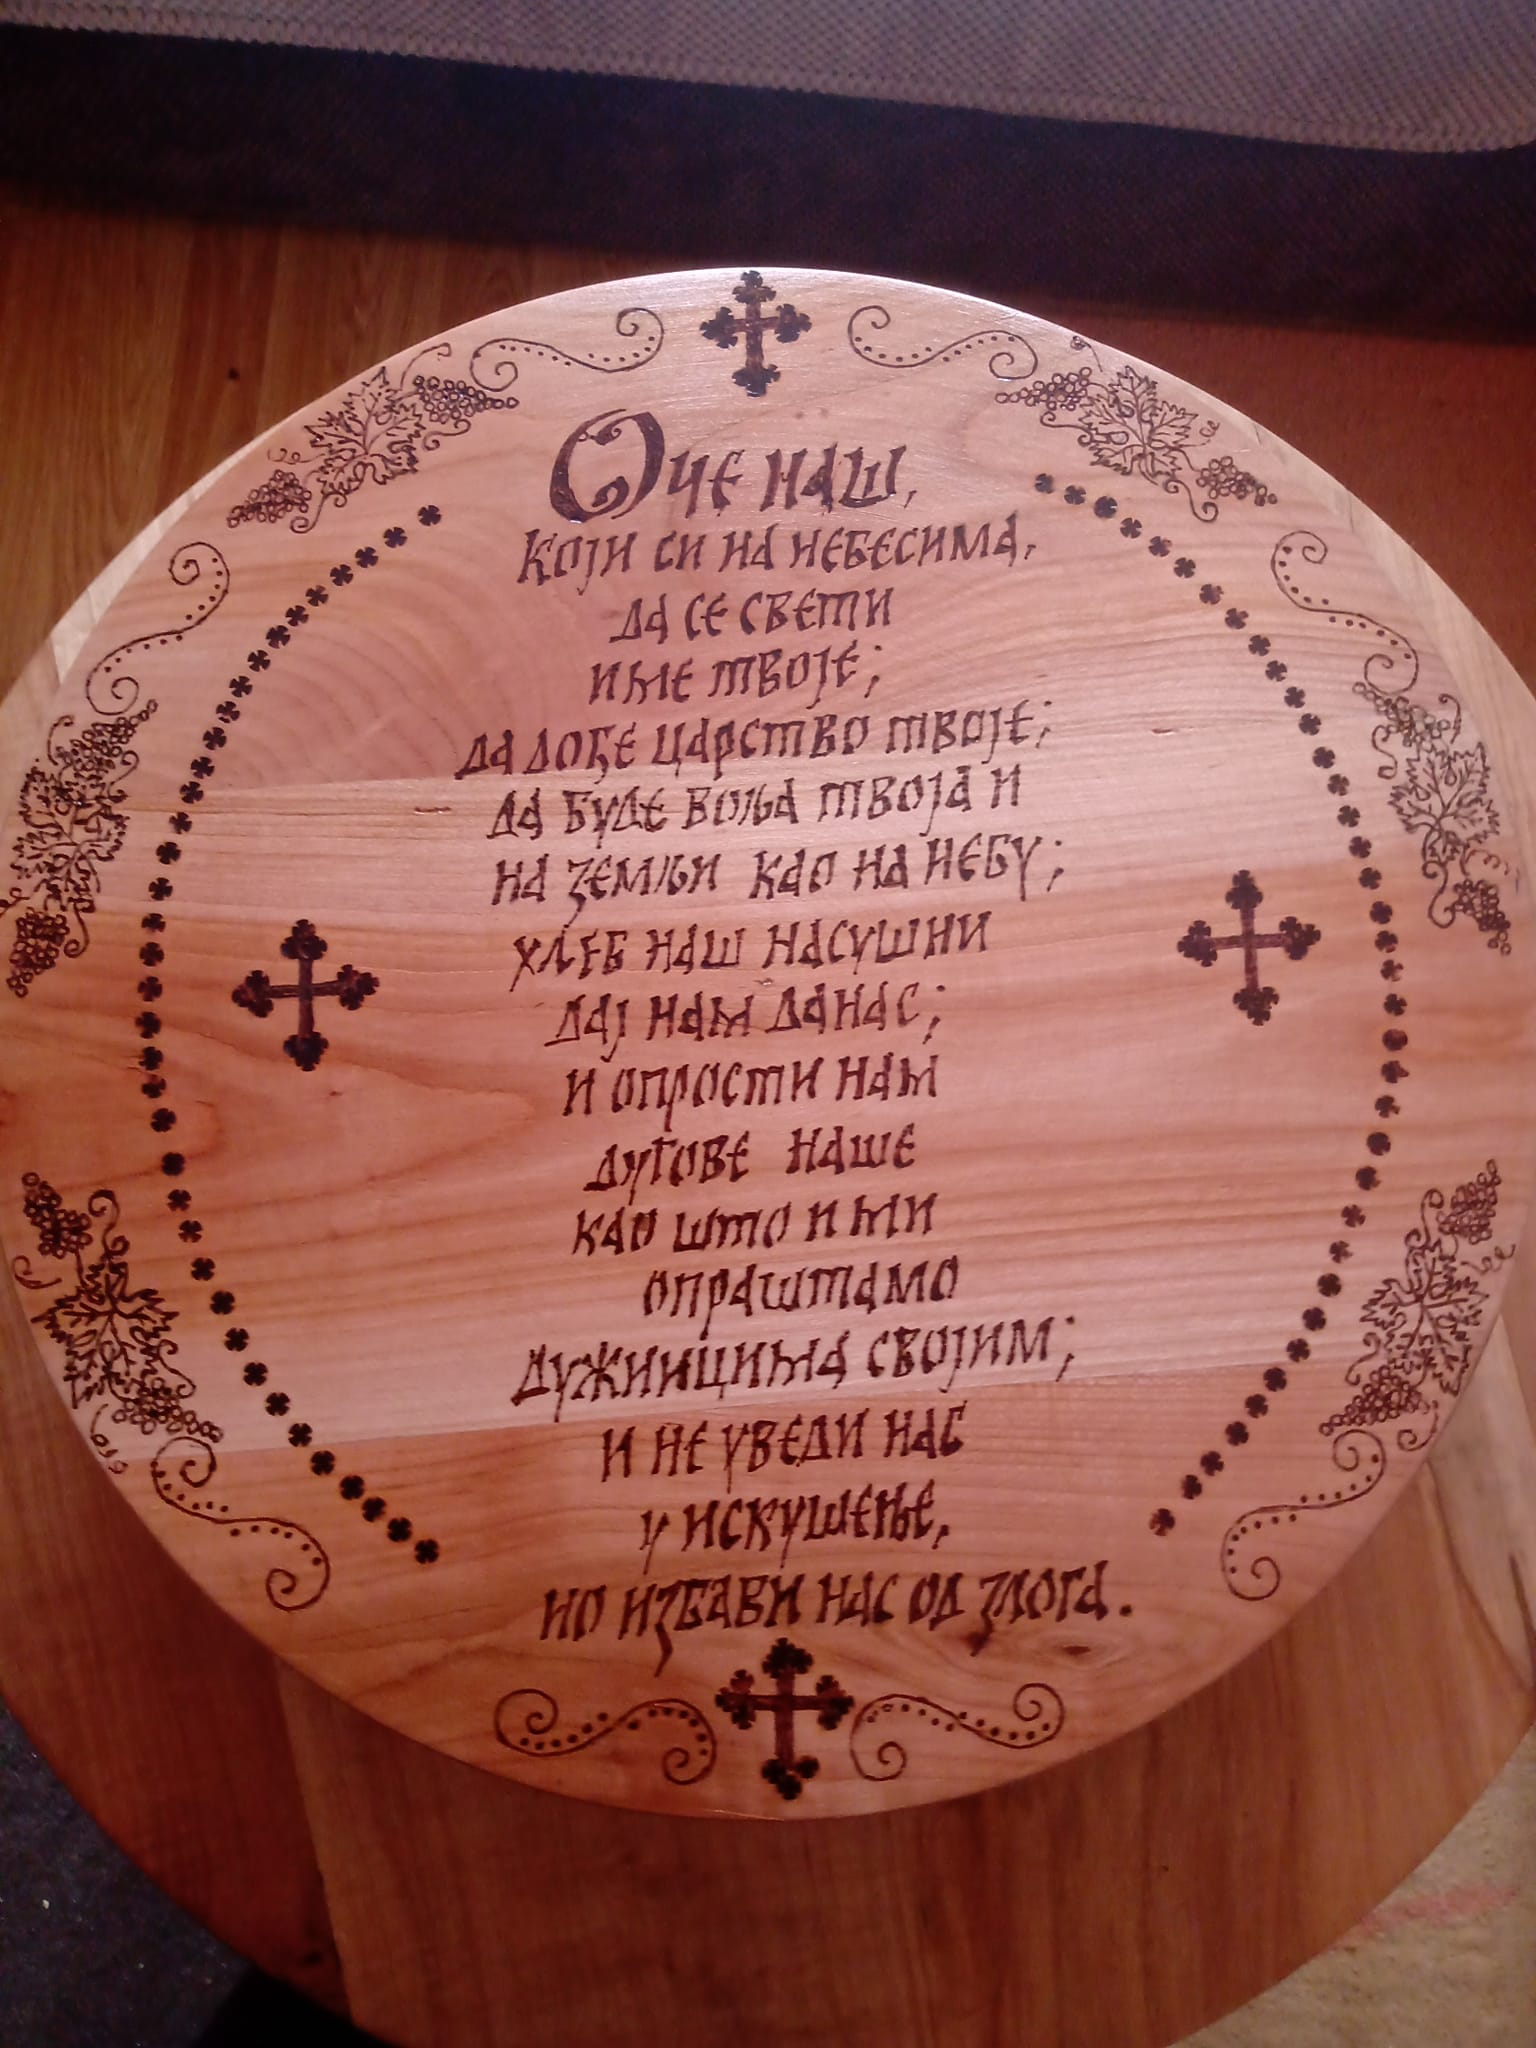 Оче наш,
који си на небесима,
да се свети
име твоје;
да дође царство твоје;
да буде воља твоја и
на земљи као на небу;
хљеб наш насушни
дај нам данас;
и опрости нам
дугове наше
као што и ми
опраштамо
дужницима својим;
и не уведи нас
у искушење,
но избави нас од злога.